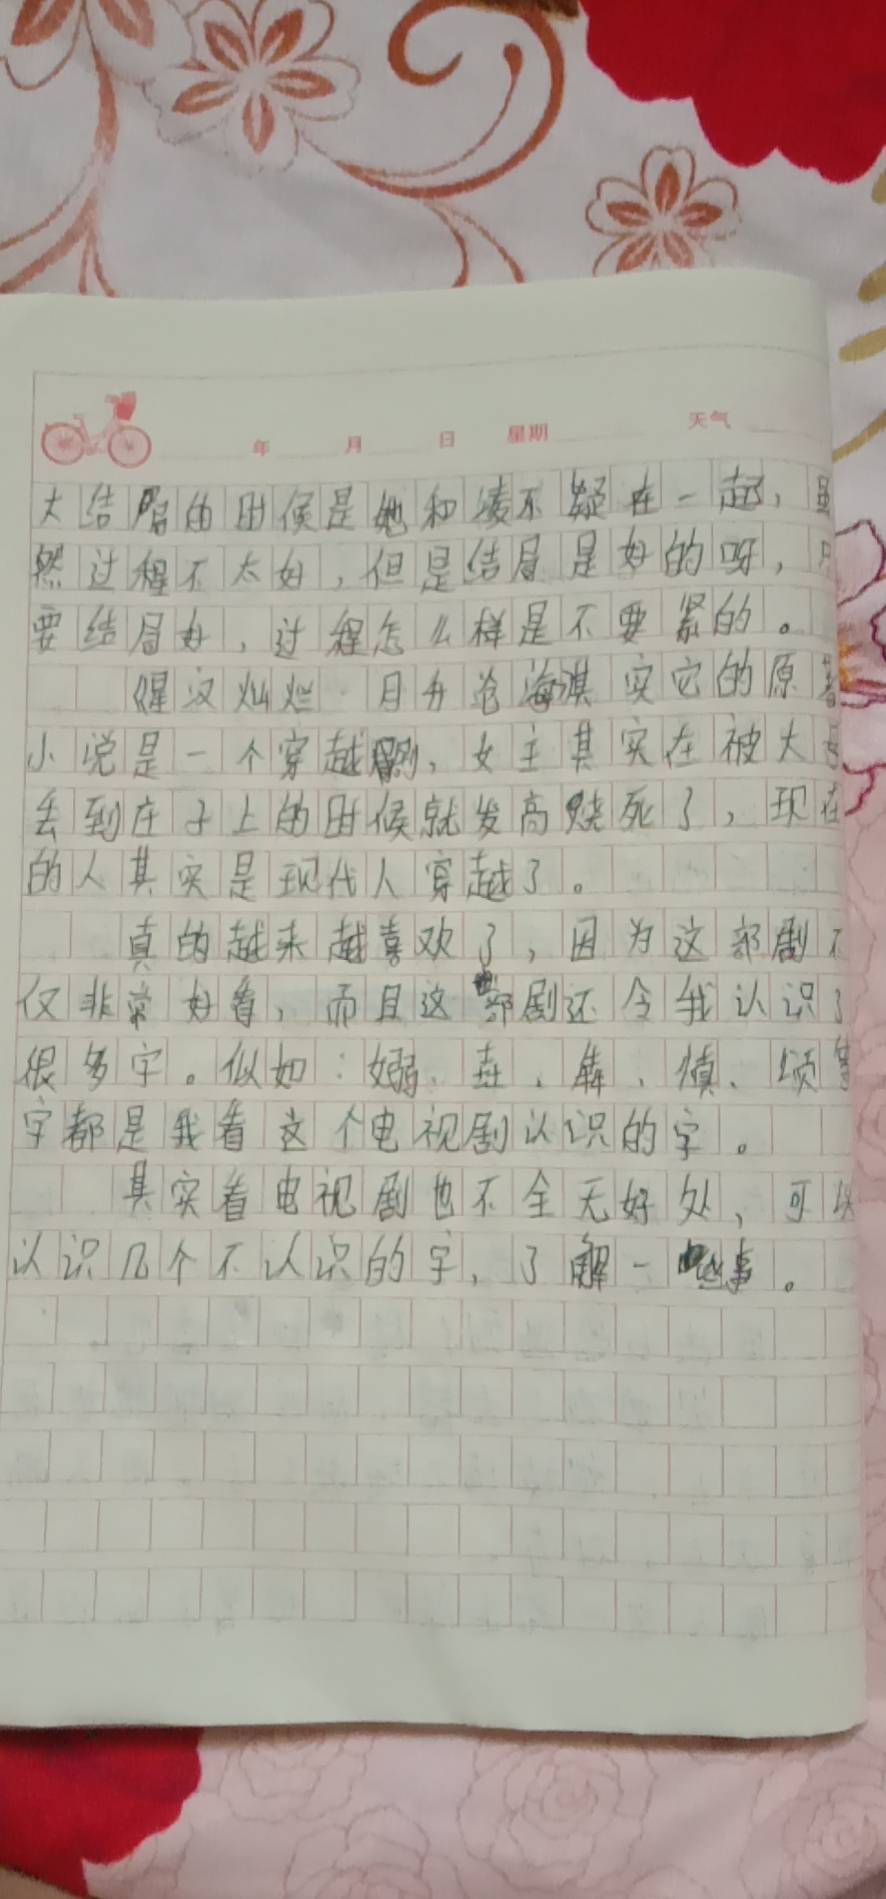 年 月 日 星期 天气
大结局的时候是她和凌不疑在一起，虽
然过程不太好，但是结局是好的呀，只
要结局好，过程怎么样是不要紧的。
《星汉灿烂 月升沧海淇实它的原著
小说是一个穿越剧，女主其实在被大
丢到庄子上的时候就发高烧死了，现在
的人其实是现代人穿越了。
真的越来越喜欢了，因为这部剧不
仅非常好看，而且这部剧还令我认识了
很多字。似如：嫋、犇、慎、颂等
字都是我看这个电视剧认识的字。
其实看电视剧也不全无好处，可以
认识几个不认识的字，了解一些事。